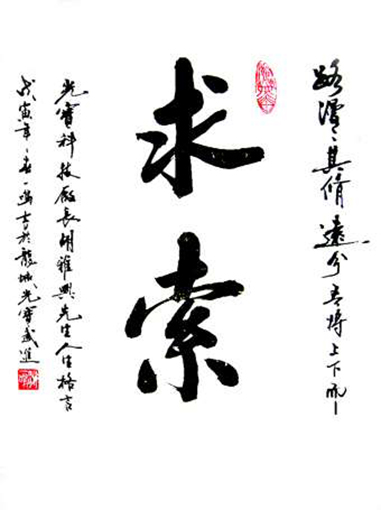 路漫〻其脩遠兮吾将上下而
求索
光寶科技廠長胡雅興先生人生格言
戊寅年春一書於龍城光寶武進